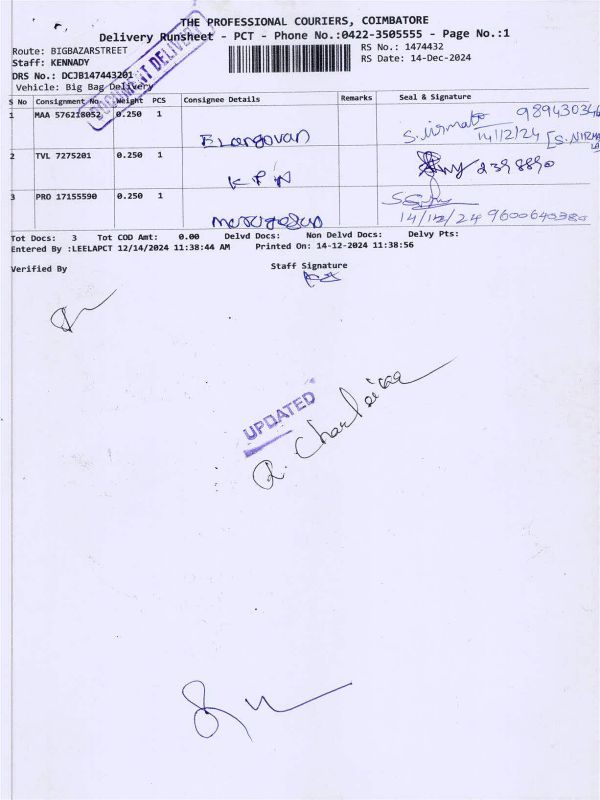 THE PROFESSIONAL COURIERS, COIMBATORE
Delivery Runsheet - PCT - Phone No.:0422-3505555 - Page No.:1
Route: BIGBAZARSTREET
RS No.: 1474432
Staff: KENNADY
RS Date: 14-Dec-2024
DRS No.: DCJB147443201
DOCUMENT DELIVERY
Vehicle: Big Bag Delivery
S No Consignment No. Weight PCS Consignee Details Remarks Seal & Signature
1 MAA 576218052 0.250 1 Elangovan S.Nirmala 989430346
14/12/24 [S.NIRMA
2 TVL 7275201 0.250 1 KPN 2398890
3 PRO 17155590 0.250 1 Murugesan
14/12/24 9600640380
Tot Docs: 3 Tot COD Amt: 0.00 Delvd Docs: Non Delvd Docs: Delvy Pts:
Entered By :LEELAPCT 12/14/2024 11:38:44 AM Printed On: 14-12-2024 11:38:56
Verified By Staff Signature
UPDATED